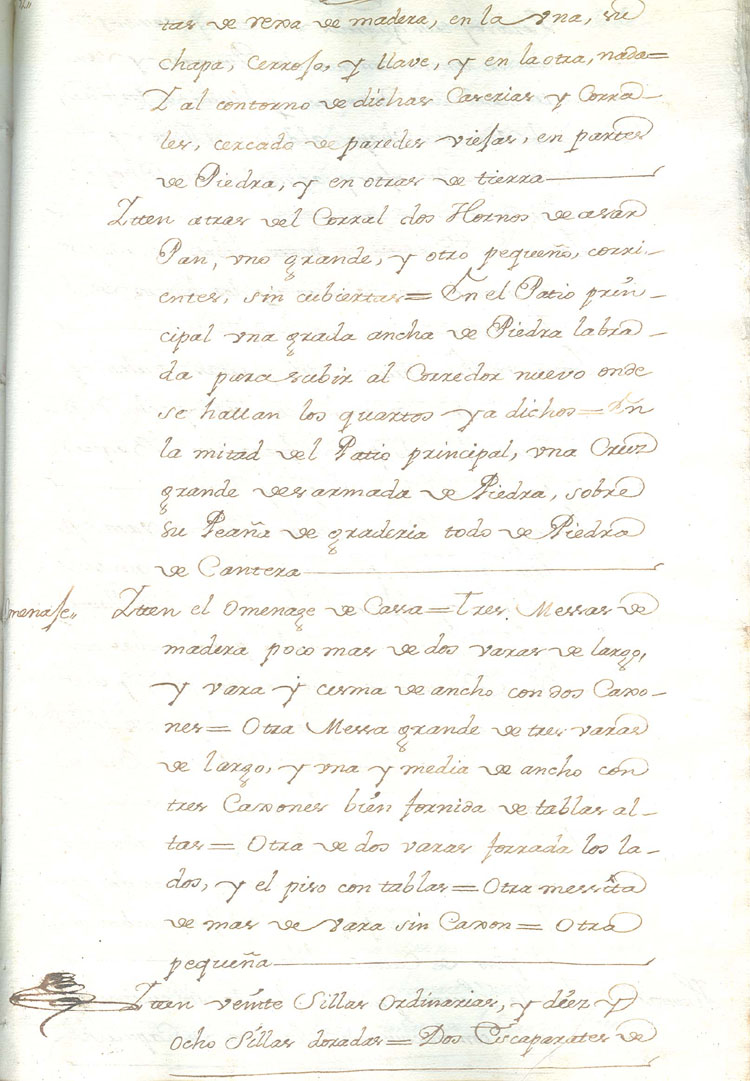 tas de rexa de madera, en la vna, su
chapa, Cerroso, y llave, y en la otra, nada=
Y al contorno de dichas Caserias y Corra-
les, cercado de paredes viejas, en partes
de Piedra, y en otras de tierra
Iten atras del Corral dos Hornos de asar
Pan, vno grande, y otro pequeño, corri-
entes, sin cubiertas= En el Patio prin-
cipal vna grada ancha de Piedra labra-
da para subir al Corredor nuevo onde
se hallan los quartos ya dichos= En
la mitad del Patio principal, vna Cruz
grande desarmada de Piedra, sobre
su Peaña de graderia todo de Piedra
de Cantera
Omenaje,, Iten el Omenage de Casa= Tres Messas de
madera poco mas de dos varas de largo,
y vara y cesma de ancho con dos Caxo-
nes= Otra Messa grande de tres varas
de largo, y vna y media de ancho con
tres Caxones bien fornida de tablas al-
tas= Otra de dos varas forrada los la-
dos, y el piso con tablas= Otra messita
de mas de vara sin Caxon= Otra
pequeña
Iten veinte Sillas Ordinarias, y diez y
Ocho Sillas doradas= Dos Escaparates de